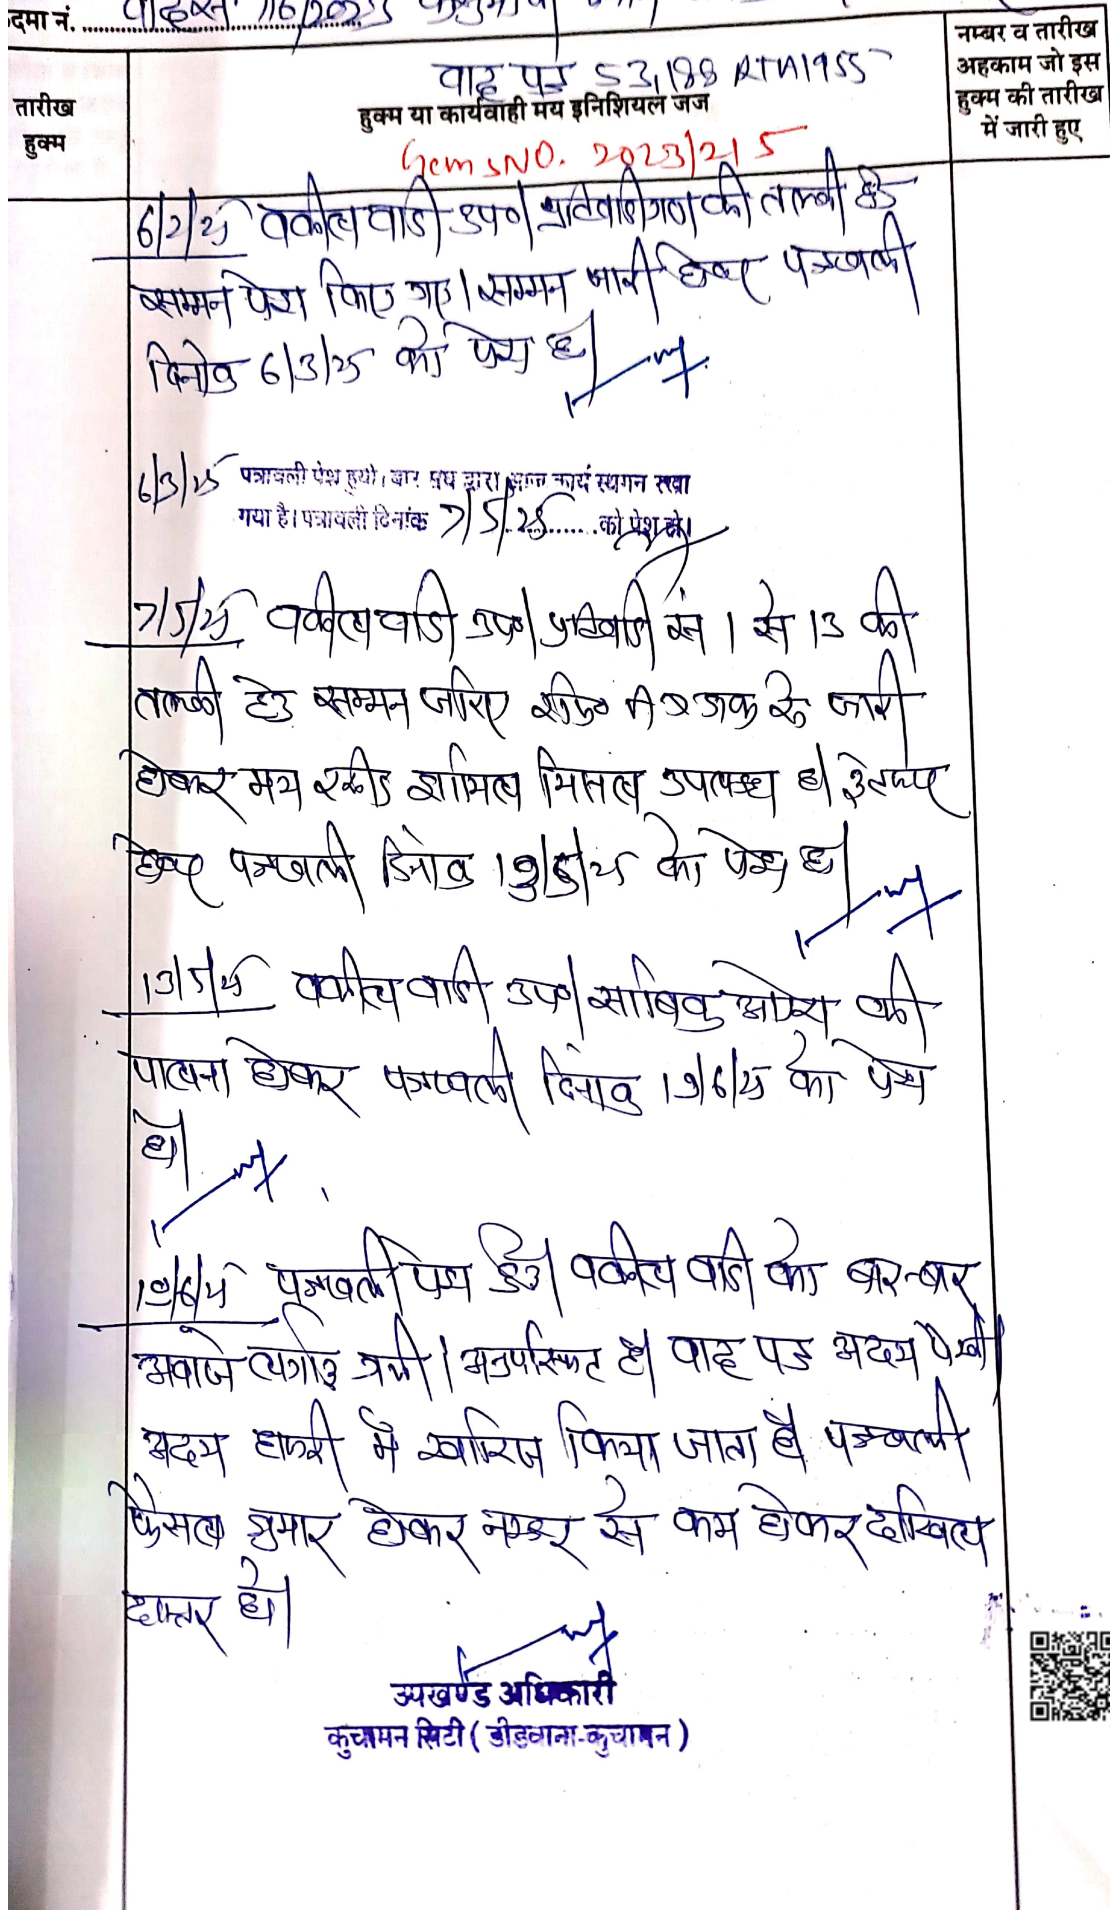 दमा नं.
वाद पत्र 53,188 RTA1955
नम्बर व तारीख
अहकाम जो इस
हुक्म की तारीख
में जारी हुए
तारीख
हुक्म
हुक्म या कार्यवाही मय इनिशियल जज
GcmsNO. 2023/215
6/2/25 वकील वादी उप०। प्रतिवादीगण की तलबी हेतु
सम्मन पेश किए गए। सम्मन जारी होकर पत्रावली
दिनांक 6/3/25 को पेश हो।
6/3/25 पत्रावली पेश हुयी। बार संघ द्वारा आज कार्य स्थगन रखा
गया है। पत्रावली दिनांक 7/5/25 को पेश हो।
7/5/25 वकील वादी उप०। प्रतिवादी सं 1 से 13 की
तलबी हेतु सम्मन जरिए रजि० डाक से जारी
होकर मय रसीद शामिल मिसल उपलब्ध है। इंतजार
होकर पत्रावली दिनांक 13/5/25 को पेश हो।
13/5/25 वकील वादी उप०। साबिक आदेश की
पालना होकर पत्रावली दिनांक 19/6/25 को पेश
हो।
19/6/25 पत्रावली पेश हुई। वकील वादी को बार-बार
आवाजे लगाई गयी। अनुपस्थित है। वाद पत्र अदम पैरवी
अदम हाजरी में खारिज किया जाता है। पत्रावली
फैसल शुमार होकर नम्बर से कम होकर दाखिल
दफ्तर हो।
उपखण्ड अधिकारी
कुचामन सिटी (डीडवाना-कुचामन)